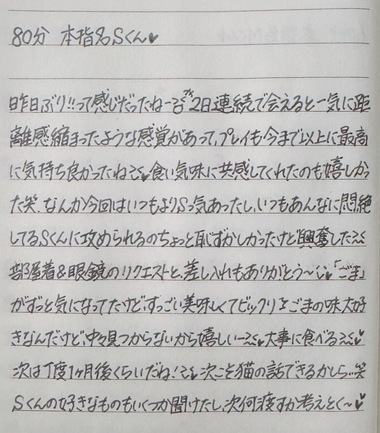 80分 本指名Sくん♥
昨日ぶり!!って感じだったねー 2日連続で会えると一気に距
離感縮まったような感覚があって、プレイも今まで以上に最高
に気持ち良かったね♥食い気味に共感してくれたのも嬉しかっ
た笑 なんか今回はいつもよりSっ気あったし、いつもあんなに悶絶
してるSくんに攻められるのちょっと恥ずかしかったけど興奮した
部屋着&眼鏡のリクエストと、差し入れもありがとう〜♥「ごま」
がずっと気になってたけどすっごい美味しくてビックリ ごまの味大好
きなんだけど、中々見つからないから嬉しいー大事に食べる♥
次は丁度1ヶ月後くらいだね!次こそ猫の話できるかしら…笑
Sくんの好きなものもいくつか聞けたし、次何渡すか考えとく〜♥